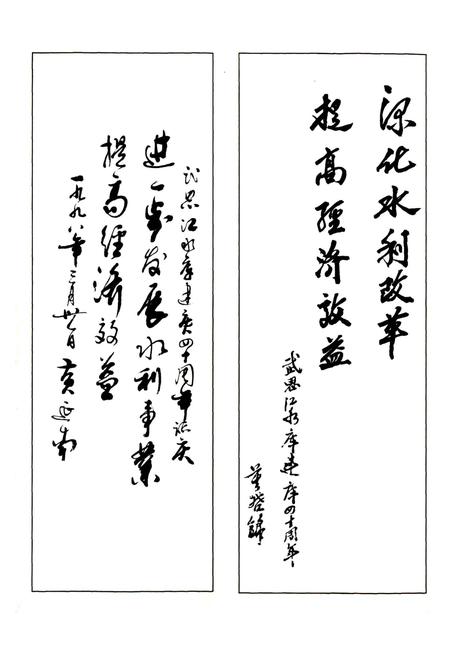 深化水利改革
提高经济效益
武思江水库建库四十周年
武思江水库建库四十周年志庆
进一步发展水利事业
提高经济效益
一九九八年三月卅一日 黄延南